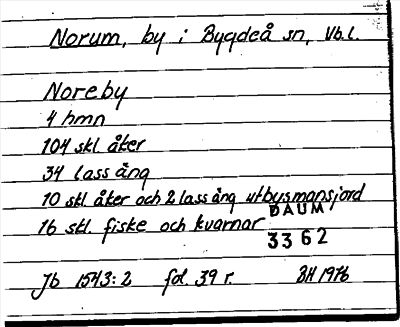 Norum, by i Bygdeå sn, Vb.l.
Noreby
4 hmn
104 skl. åker
34 lass äng
10 skl åker och 2 lass äng utbysmansjord
16 skl. fiske och kvarnar
DAUM
3362
Jb 1543:2 fol. 39 r. BH 1976